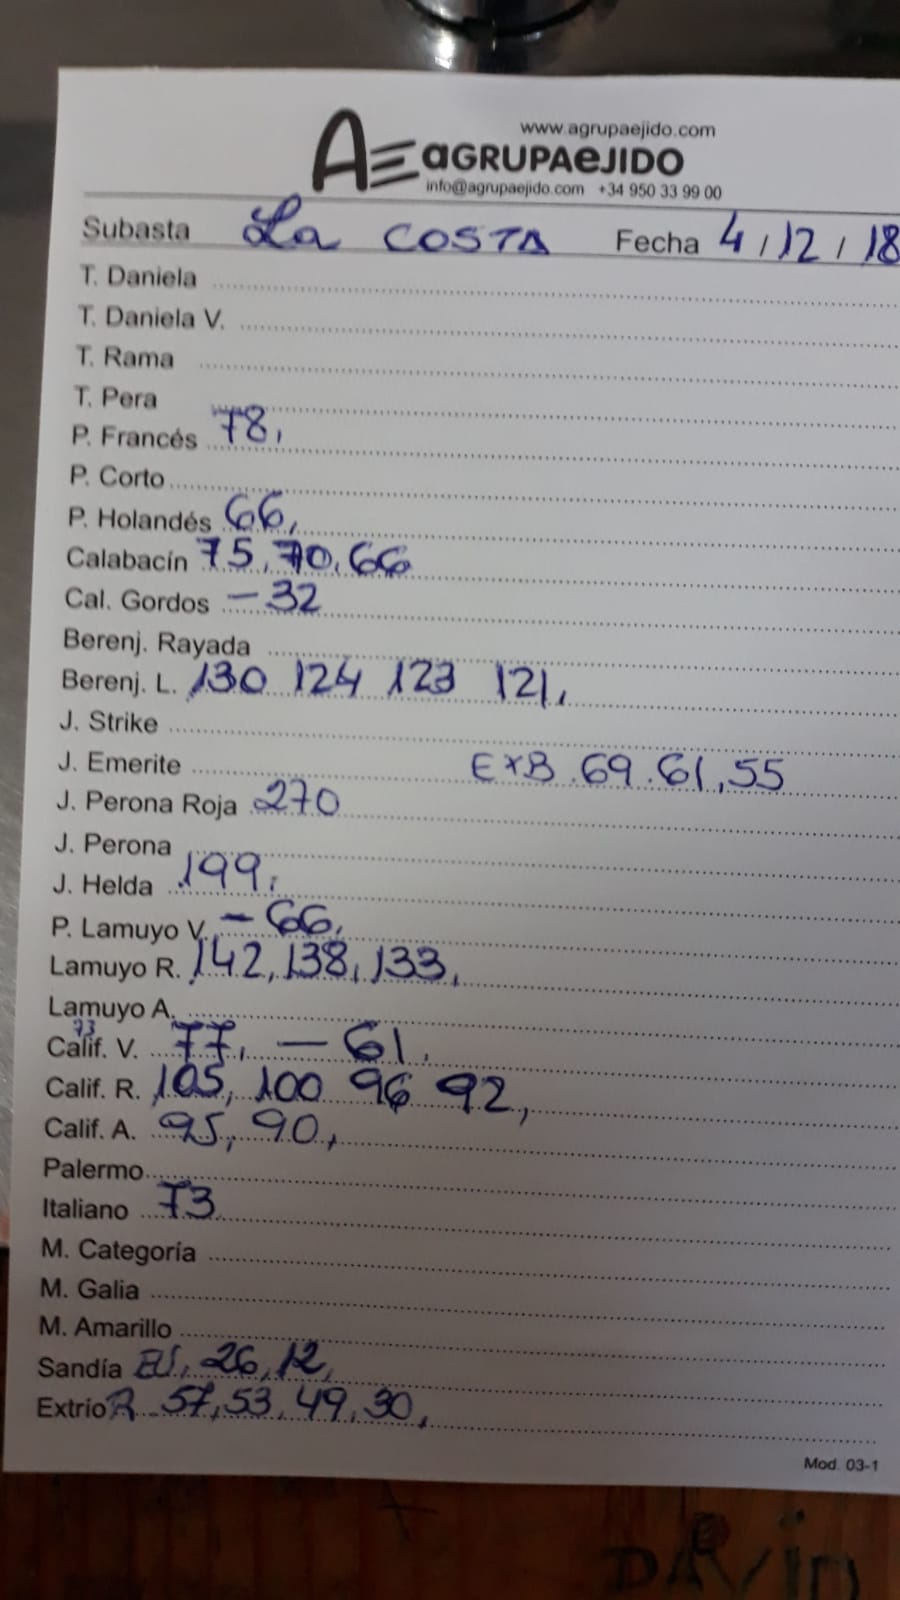 www.agrupaejido.com
AE aGRUPAeJIDO
info@agrupaejido.com +34 950 33 99 00
Subasta La COSTA Fecha 4/12/18
T. Daniela
T. Daniela V.
T. Rama
T. Pera
P. Francés 78,
P. Corto
P. Holandés 66,
Calabacín 75,70,66
Cal. Gordos -32
Berenj. Rayada
Berenj. L. 130 124 123 121,
J. Strike
J. Emerite ExB.69.61,55
J. Perona Roja 270
J. Perona
J. Helda 199,
P. Lamuyo V. -66,
Lamuyo R. 142,138,133,
Lamuyo A.
73
Calif. V. 77, -61,
Calif. R. 105, 100 96 92,
Calif. A. 95,90,
Palermo
Italiano 73
M. Categoría
M. Galia
M. Amarillo
Sandía 26,12,
Extrio R-57,53,49,30,
Mod. 03-1
DAVID